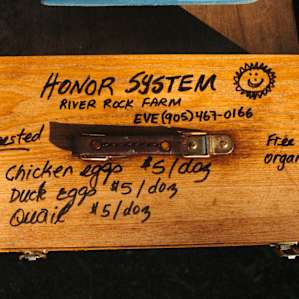 HONOR SYSTEM
RIVER ROCK FARM
EVE (905) 467-0166
Free
Chicken eggs $5/doz
Duck eggs $5/doz
Quail $5/doz